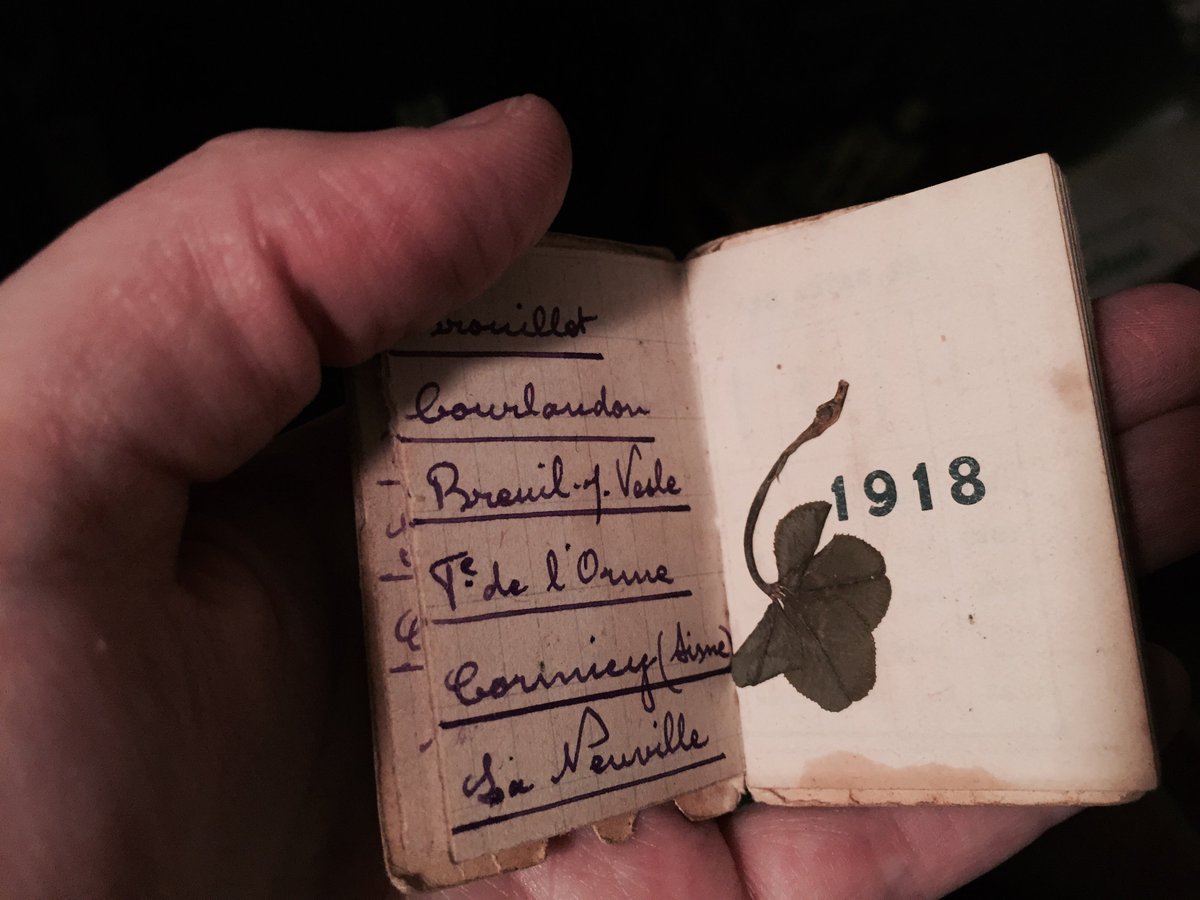 Courlandon
Breuil.s/. Vesle
Te. de l'Orme
Cormicy (Aisne)
La Neuville
1918